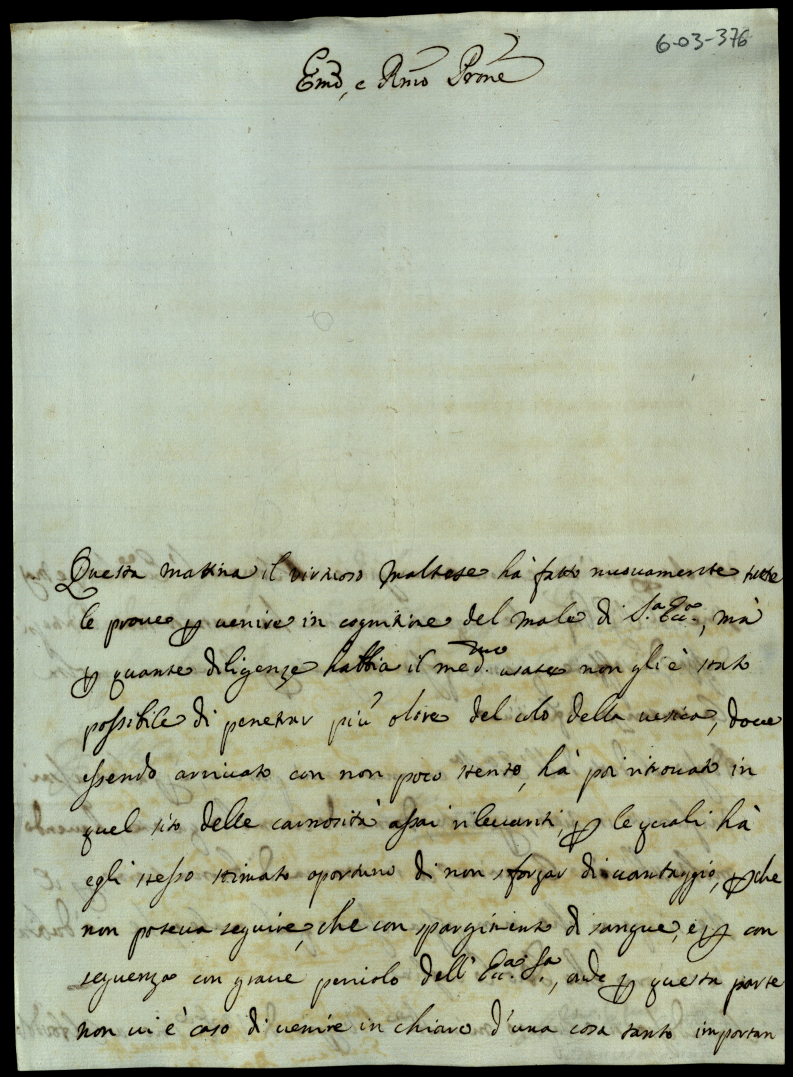 6-03-376
Emo, e Rmo Prone
Questa mattina il virtuoso Maltese hà fatto nuouamente tutte
le proue p uenire in cognitione del male di S.a Ecc.a, mà
p quante diligenze habbia il med.mo usate non gli è stato
possibile di penetrar più oltre del colo della uesica, doue
essendo arriuato con non poco stento, hà poi ritrouato in
quel sito delle carnosità assai rileuanti, p le quali hà
egli stesso stimato oportuno di non sforzar di uantaggio, pche
non poteua seguire, che con spargimento di sangue, e p con
seguenza con graue pericolo dell' Ecc.a S.a, onde p questa parte
non ui è caso di uenire in chiaro d'una cosa tanto importan